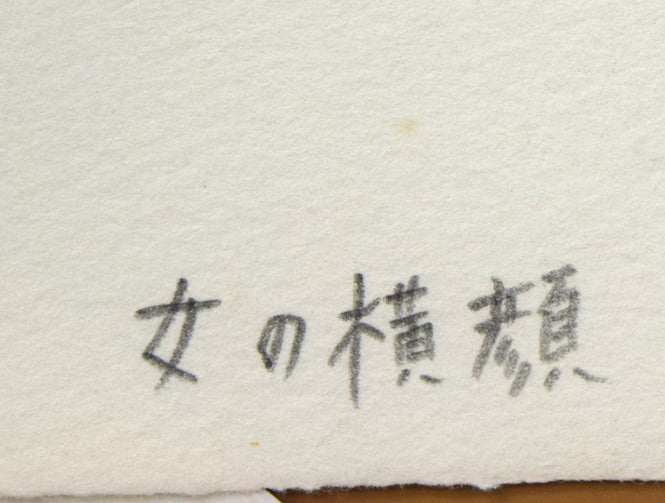 女の横顔